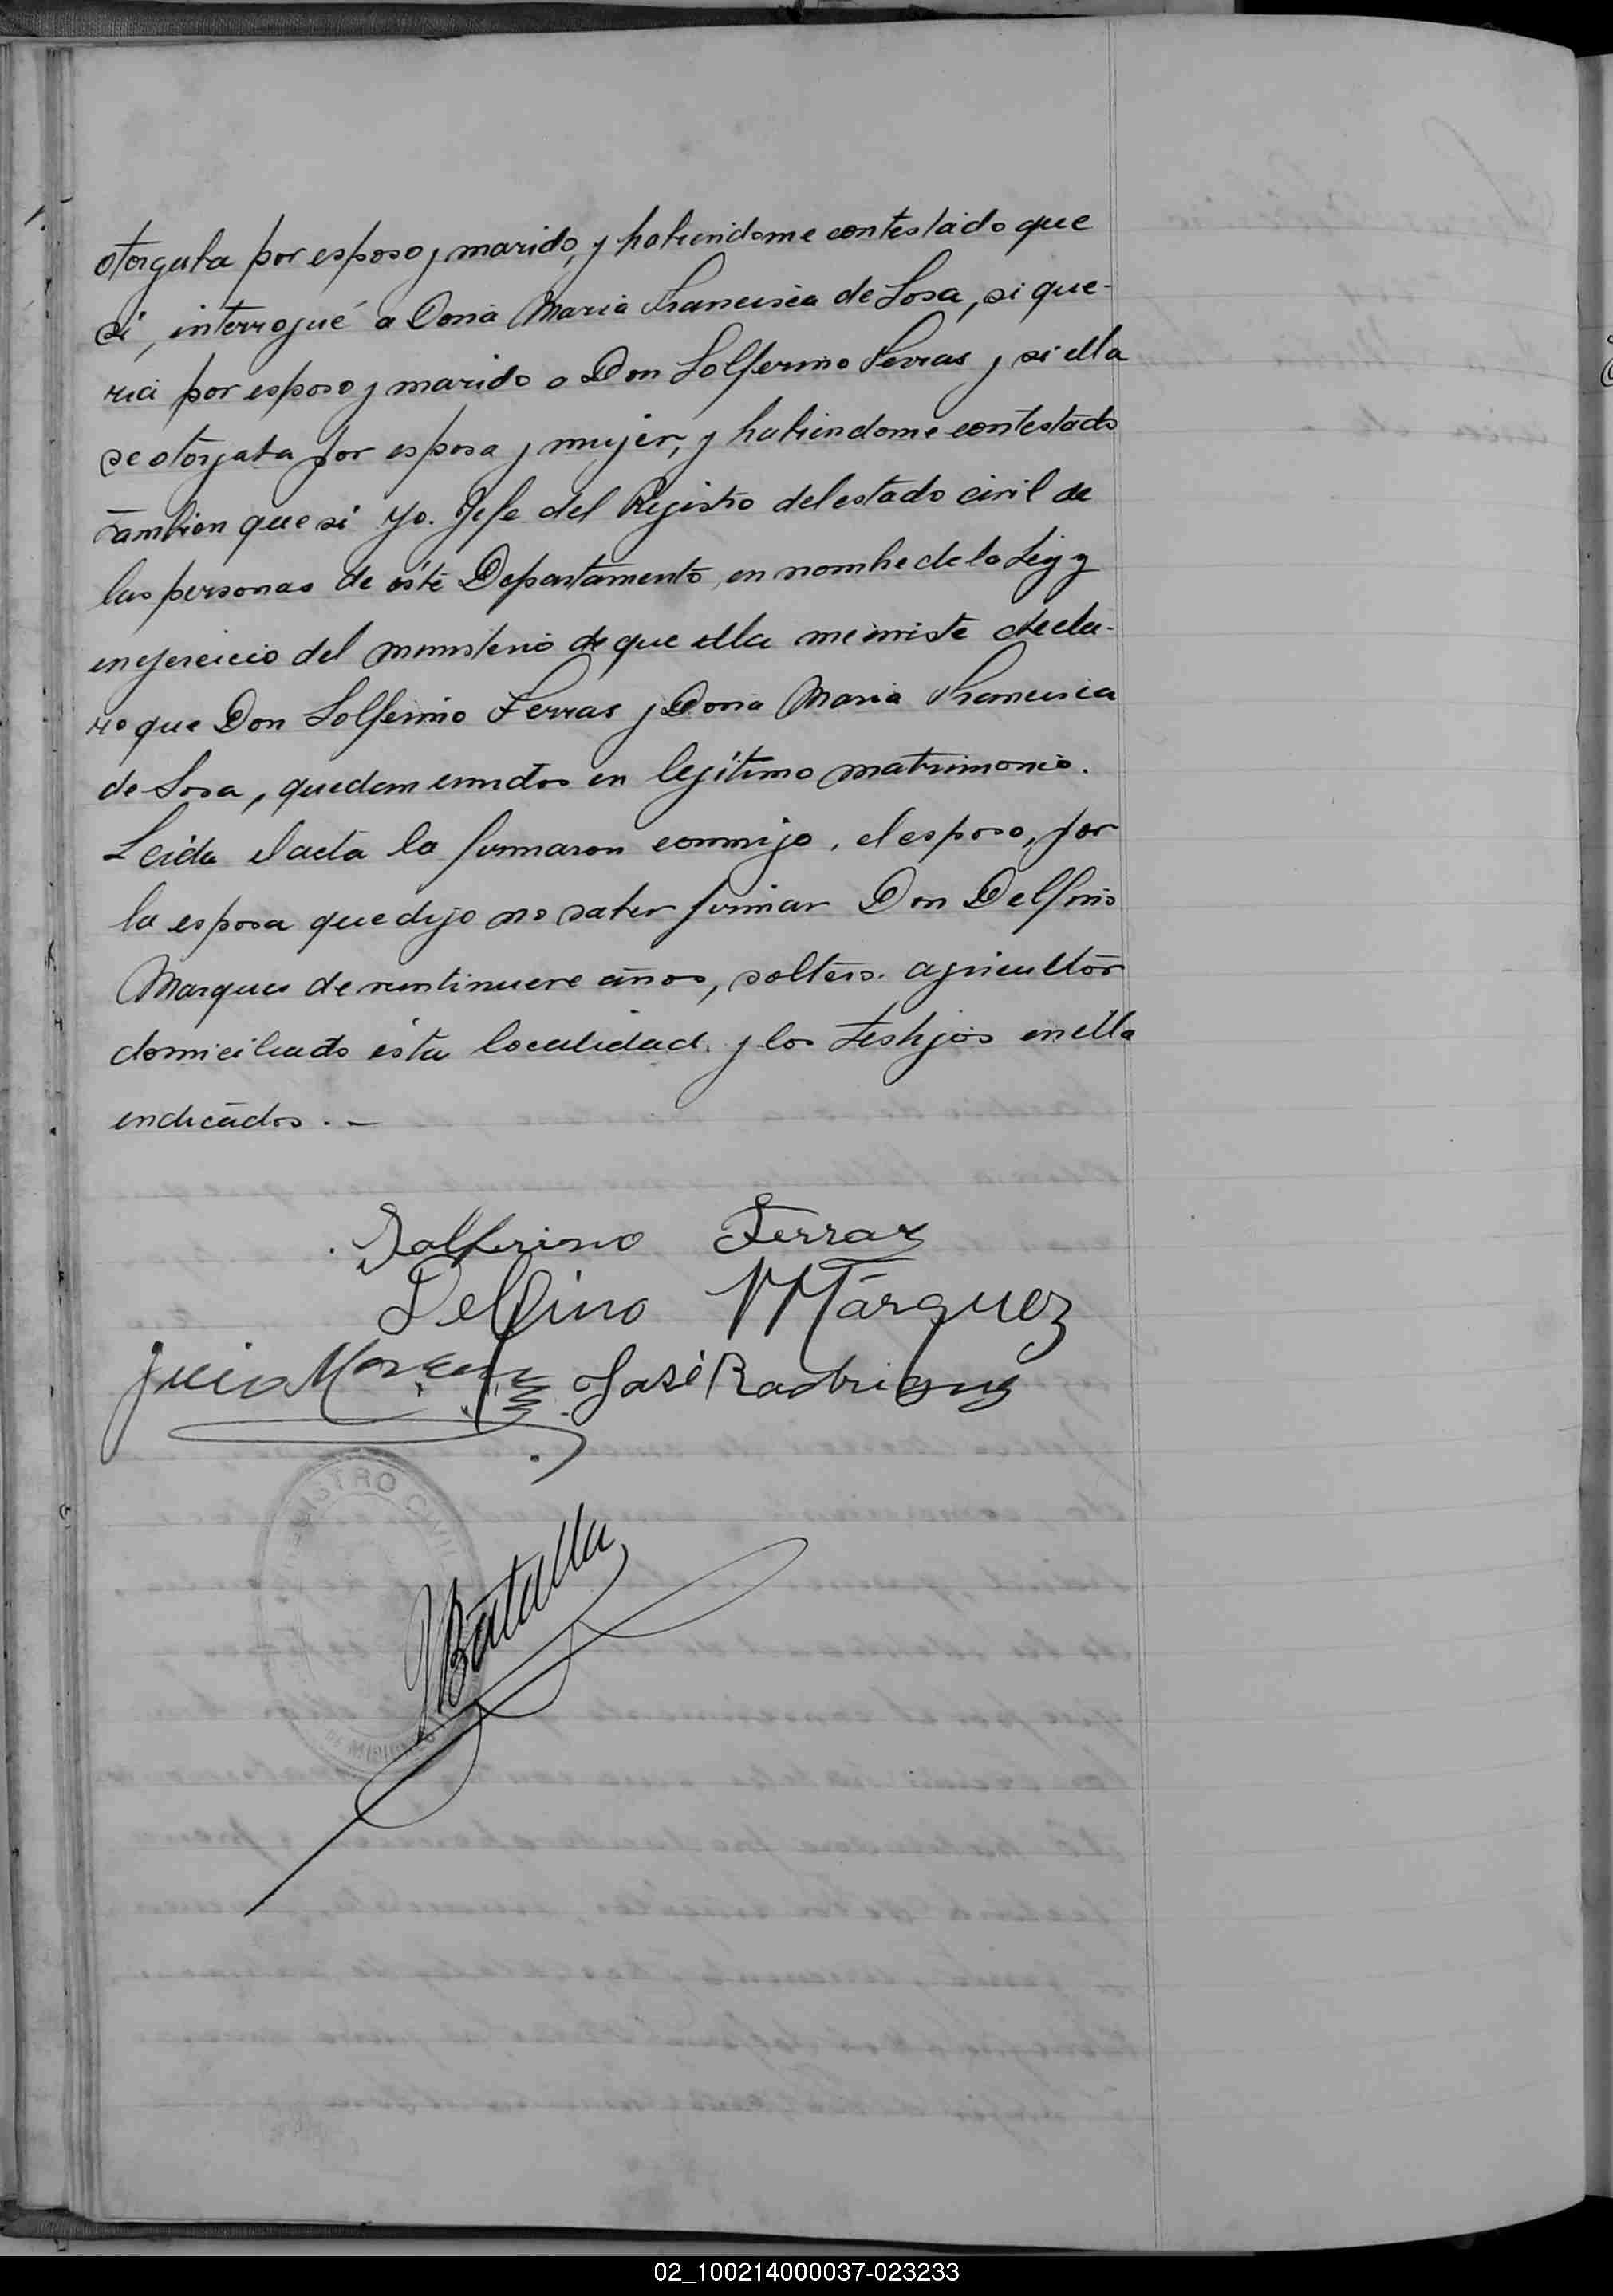 otorgaba por esposo y marido, y habiendome contestado que
si, interrogué a Dona Maria Francisca de Sosa, si que-
ria por esposo y marido a Don Solferino Ferras y si ella
se otorgaba por esposa y mujer, y habiendome contestado
tambien que si yo. Jefe del Registro del estado civil de
las personas de éste Departamento, en nombre de la Ley y
en ejercicio del ministerio de que ella me inviste decla-
ro que Don Solferino Ferras y Dona Maria Francisca
de Sosa, quedan unidos en legítimo matrimonio.
Leida el acta la firmaron conmigo, el esposo, por
la esposa que dijo no saber firmar Don Delfino
Marques de veintinueve años, soltero. agricultor
domiciliado ésta localidad. y los testigos en ella
indicados. —
Solferino Ferraz
Delfino Márquez
José Rodriguez
REGISTRO CIVIL
Batalla
DE MISIONES
02_100214000037-023233